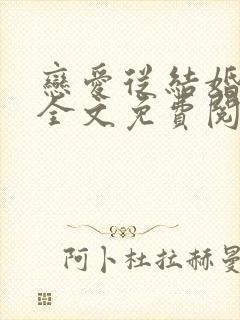 戀愛從結婚
全文免費閱
阿卜杜拉赫曼